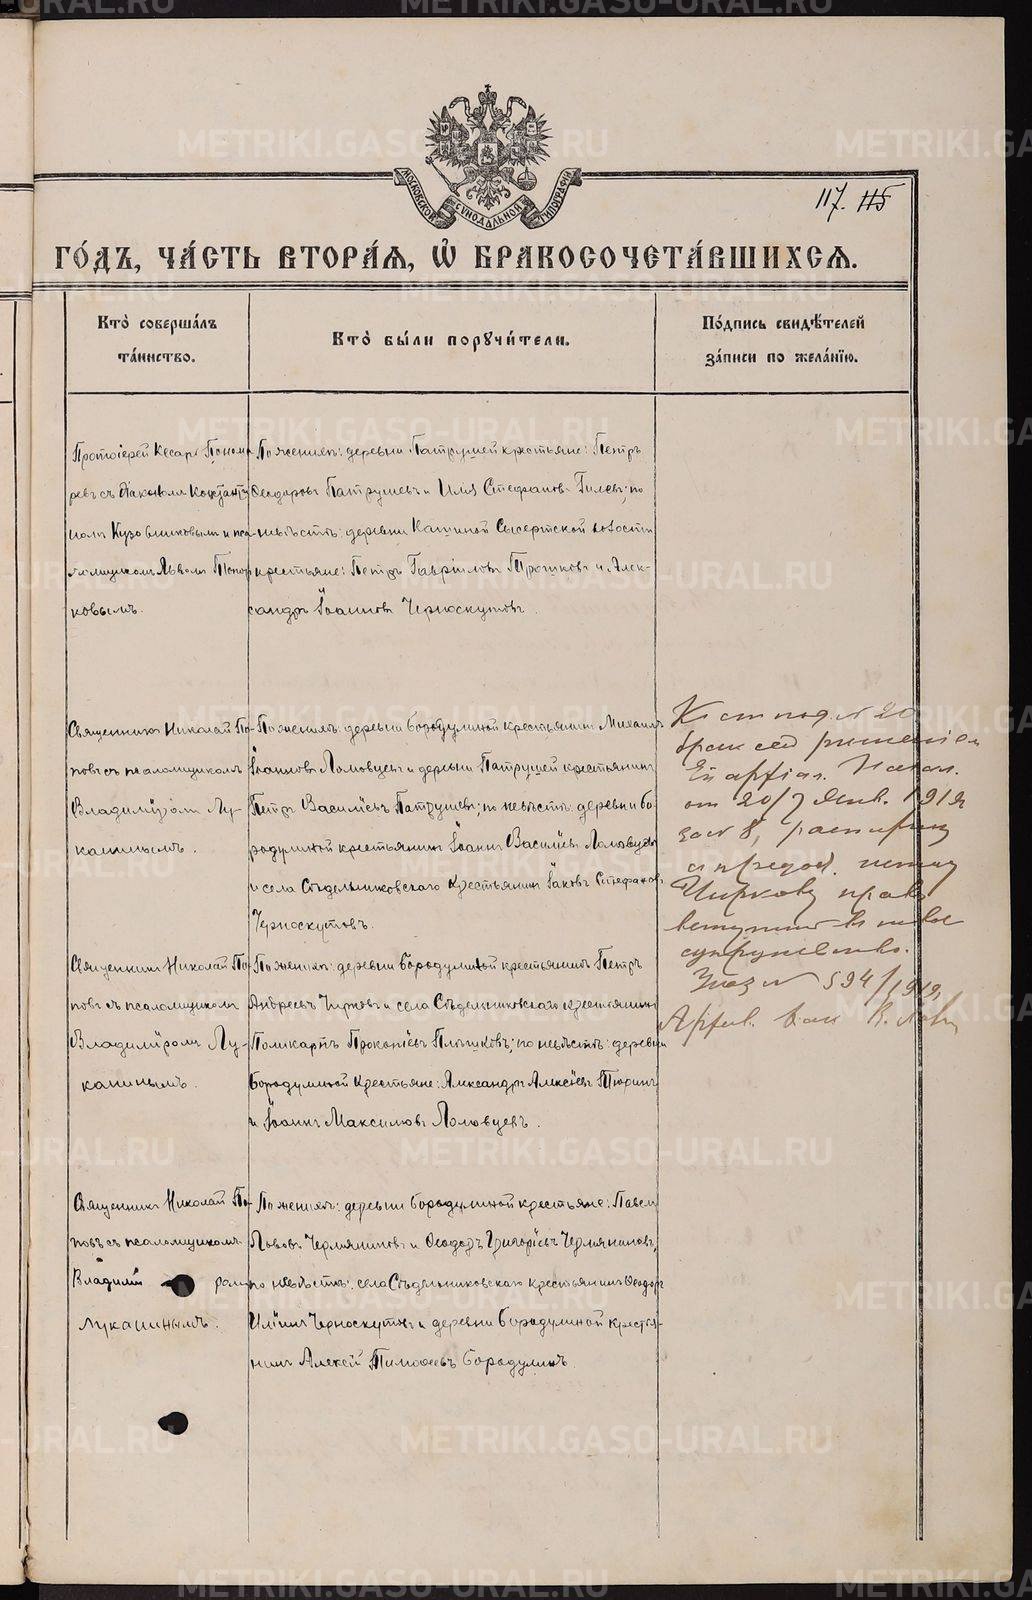 МОСКОВСКОЙ СѴНОДАЛЬНОЙ ТИПОГРАФІИ
117. 115
ГО́ДЪ, ЧА́СТЬ ВТОРА́Я, Ѽ БРАКОСОЧЕТА́ВШИХСЯ.
Кто̀ соверша́лъ
та́инство.
Кто̀ бы́ли порꙋчи́тели.
По́дпись свидѣ́телей
за́писи по жела́нїю.
Протоіерей Кесарь Понома
ревъ съ діакономъ Константи
номъ Кузовниковымъ и пса-
ломщикомъ Львомъ Попор
ковымъ.
По женихѣ: деревни Патрушей крестьяне: Петръ
Ѳеодоровъ Патрушевъ и Илія Стефановъ Гилевъ; по
невѣстѣ: деревни Кашиной Сысертской волости
крестьяне: Петръ Гавріиловъ Трошковъ и Алек-
сандръ Іоанновъ Черноскутовъ.
Священникъ Николай По-
повъ съ псаломщикомъ
Владиміромъ Лу-
каннымъ.
По женихѣ: деревни Бородулиной крестьянинъ Михаилъ
Іоанновъ Ломовцевъ и деревни Патрушей крестьянинъ
Петръ Василіевъ Патрушевъ; по невѣстѣ: деревни Бо-
родулиной крестьянинъ Іоаннъ Василіевъ Ломовцевъ
и села Сѣдельниковскаго крестьянинъ Іаковъ Стефановъ
Черноскутовъ.
К ст под № 20
брак сей решением
Епархіал. Начал.
от 20/7 Янв. 1919
за № 8, расторгнут
и предост. истцу
Чиркову право
вступить в новое
супружество.
Указ № 594/1919
Архив.
Священникъ Николай По-
повъ съ псаломщикомъ
Владиміромъ Лу-
каинымъ.
По женихѣ: деревни Бородулиной крестьянинъ Петръ
Андреевъ Чирковъ и села Сѣдельниковскаго крестьянинъ
Поликарпъ Прокопіевъ Плѣшковъ; по невѣстѣ: деревни
Бородулиной крестьяне: Александръ Алексіевъ Тюринъ
и Іоаннъ Максимовъ Ломовцевъ.
Священникъ Николай По-
повъ съ псаломщикомъ
Владимі ромъ
Лукаинымъ.
По женихѣ: деревни Бородулиной крестьяне: Павелъ
Львовъ Чермяниновъ и Ѳеодоръ Григоріевъ Чермяниновъ;
по невѣстѣ: села Сѣдельниковскаго крестьянинъ Ѳеодоръ
Иліинъ Черноскутовъ и деревни Бородулиной крестья-
нинъ Алексій Тимоѳеевъ Бородулинъ.
METRIKI.GASO-URAL.RU